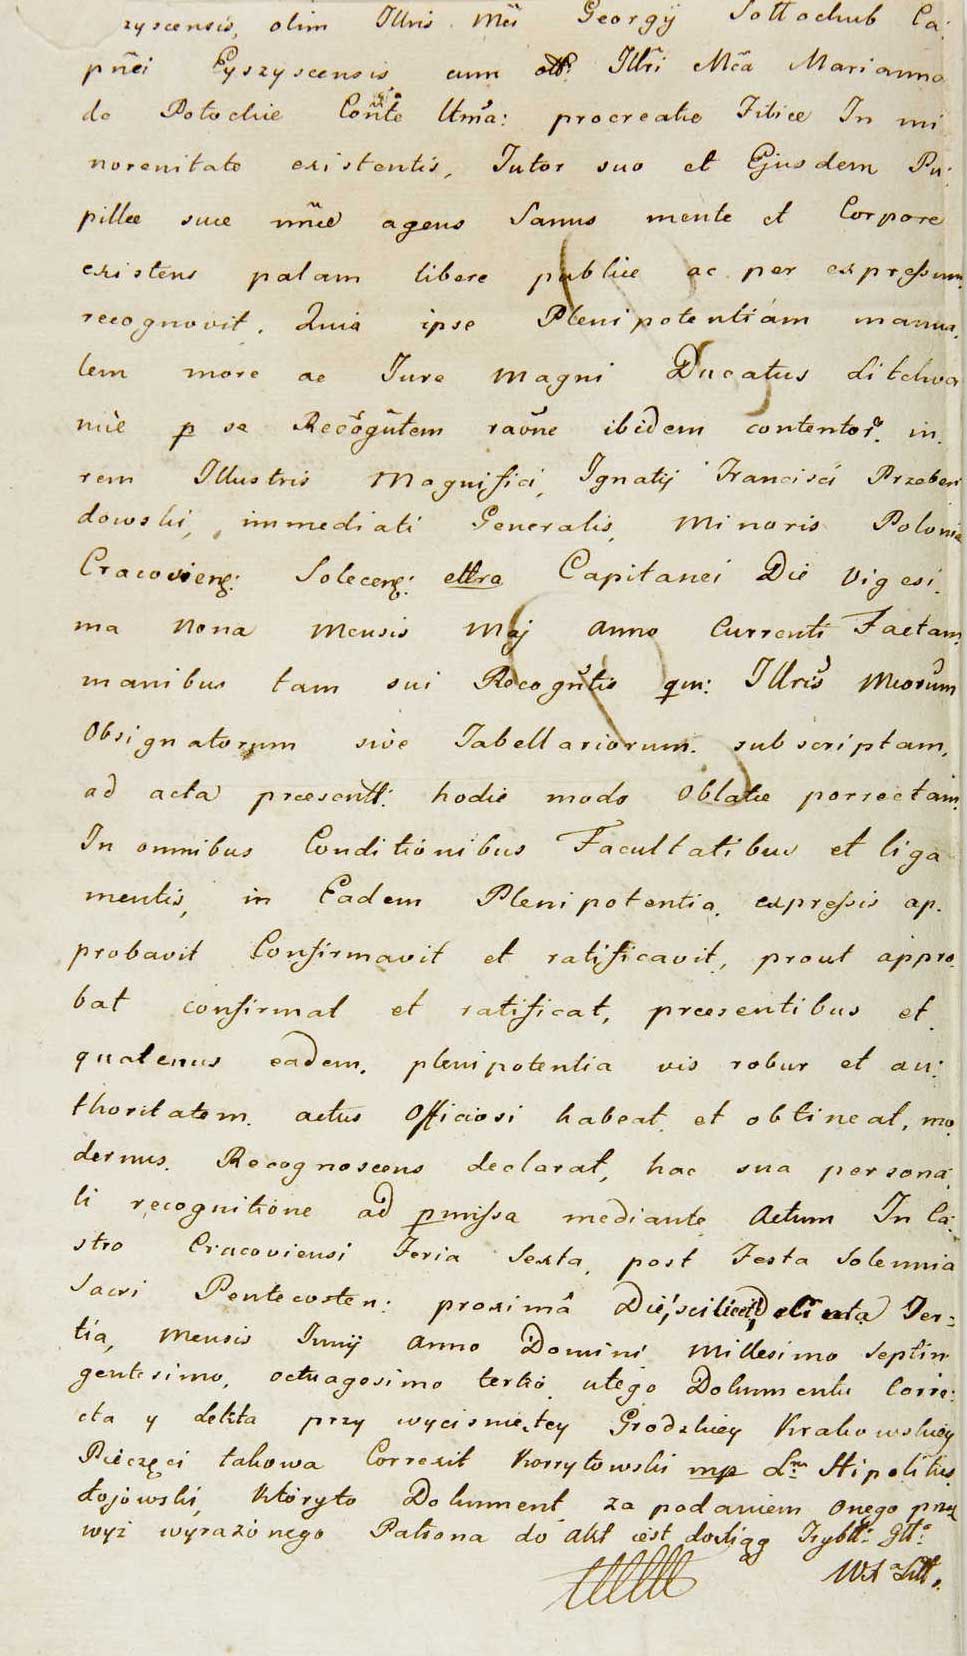 zyscensis, olim Illris Mci Georgÿ Sollochub Ca:
pñei Eyszyscensis cum olt: Illri Mca Marianna
de Potockie Conte Utma: procreatae Filiae In mi
norenitate existentis, Tutor suo et Ejusdem Pu:
pillae suae nñe agens Sanus mente et Corpore
existens palam libere publice ac per expressum
recognovit. Quia ipse Plenipotentiam manua,
lem more ac Jure Magni Ducatus Litchva
niae p se Recogñtem raoñe ibidem contentor. in.
rem Illustris Magnifici, Ignatÿ Francisci Przeben
dowski, immediati Generalis, Minoris Poloniae
Cracovieng: Soleceng: ettra Capitanei Die vigesi.
ma Nona Mensis Maj Anno Currenti Factam
manibus tam sui Recogñtis qm: Illris Mcorum
Obsignatorum sive Tabellariorum. subscriptam,
ad acta praesentt: hodie modo Oblatae porrectam.
In omnibus Conditionibus Facultatibus et liga
mentis, in Eadem Plenipotentia. expressis ap.
probavit Confirmavit et ratificavit, prout appro.
bat confirmat et ratificat, praesentibus et.
quatenus eadem. plenipotentia vis robur et au:
thoritatem. actus Officiosi habeat et obtineat, mo
dernus. Recognoscens declarat, hac sua persona,
li recognitione ad pmissa mediante Actum In Ca:
stro Cracoviensi Feria Sexta, post Festa Solennia
Sacri Pentecosten: proxima Die, scilicet Ter=
tia, Mensis Junÿ Anno Domini Millesimo Septin
gentesimo, octuagesimo tertio utego Dokumentu Corre:
cta y lekta przy wycisnietey Grodzkiey Krakowskiey
Pieczęci takowa Correxit Korrytowski mp Lm Hipolitus
Łojowski, Któryto Dokument za podaniem onego przez
wyż wyrażonego Patrona do Akt iest